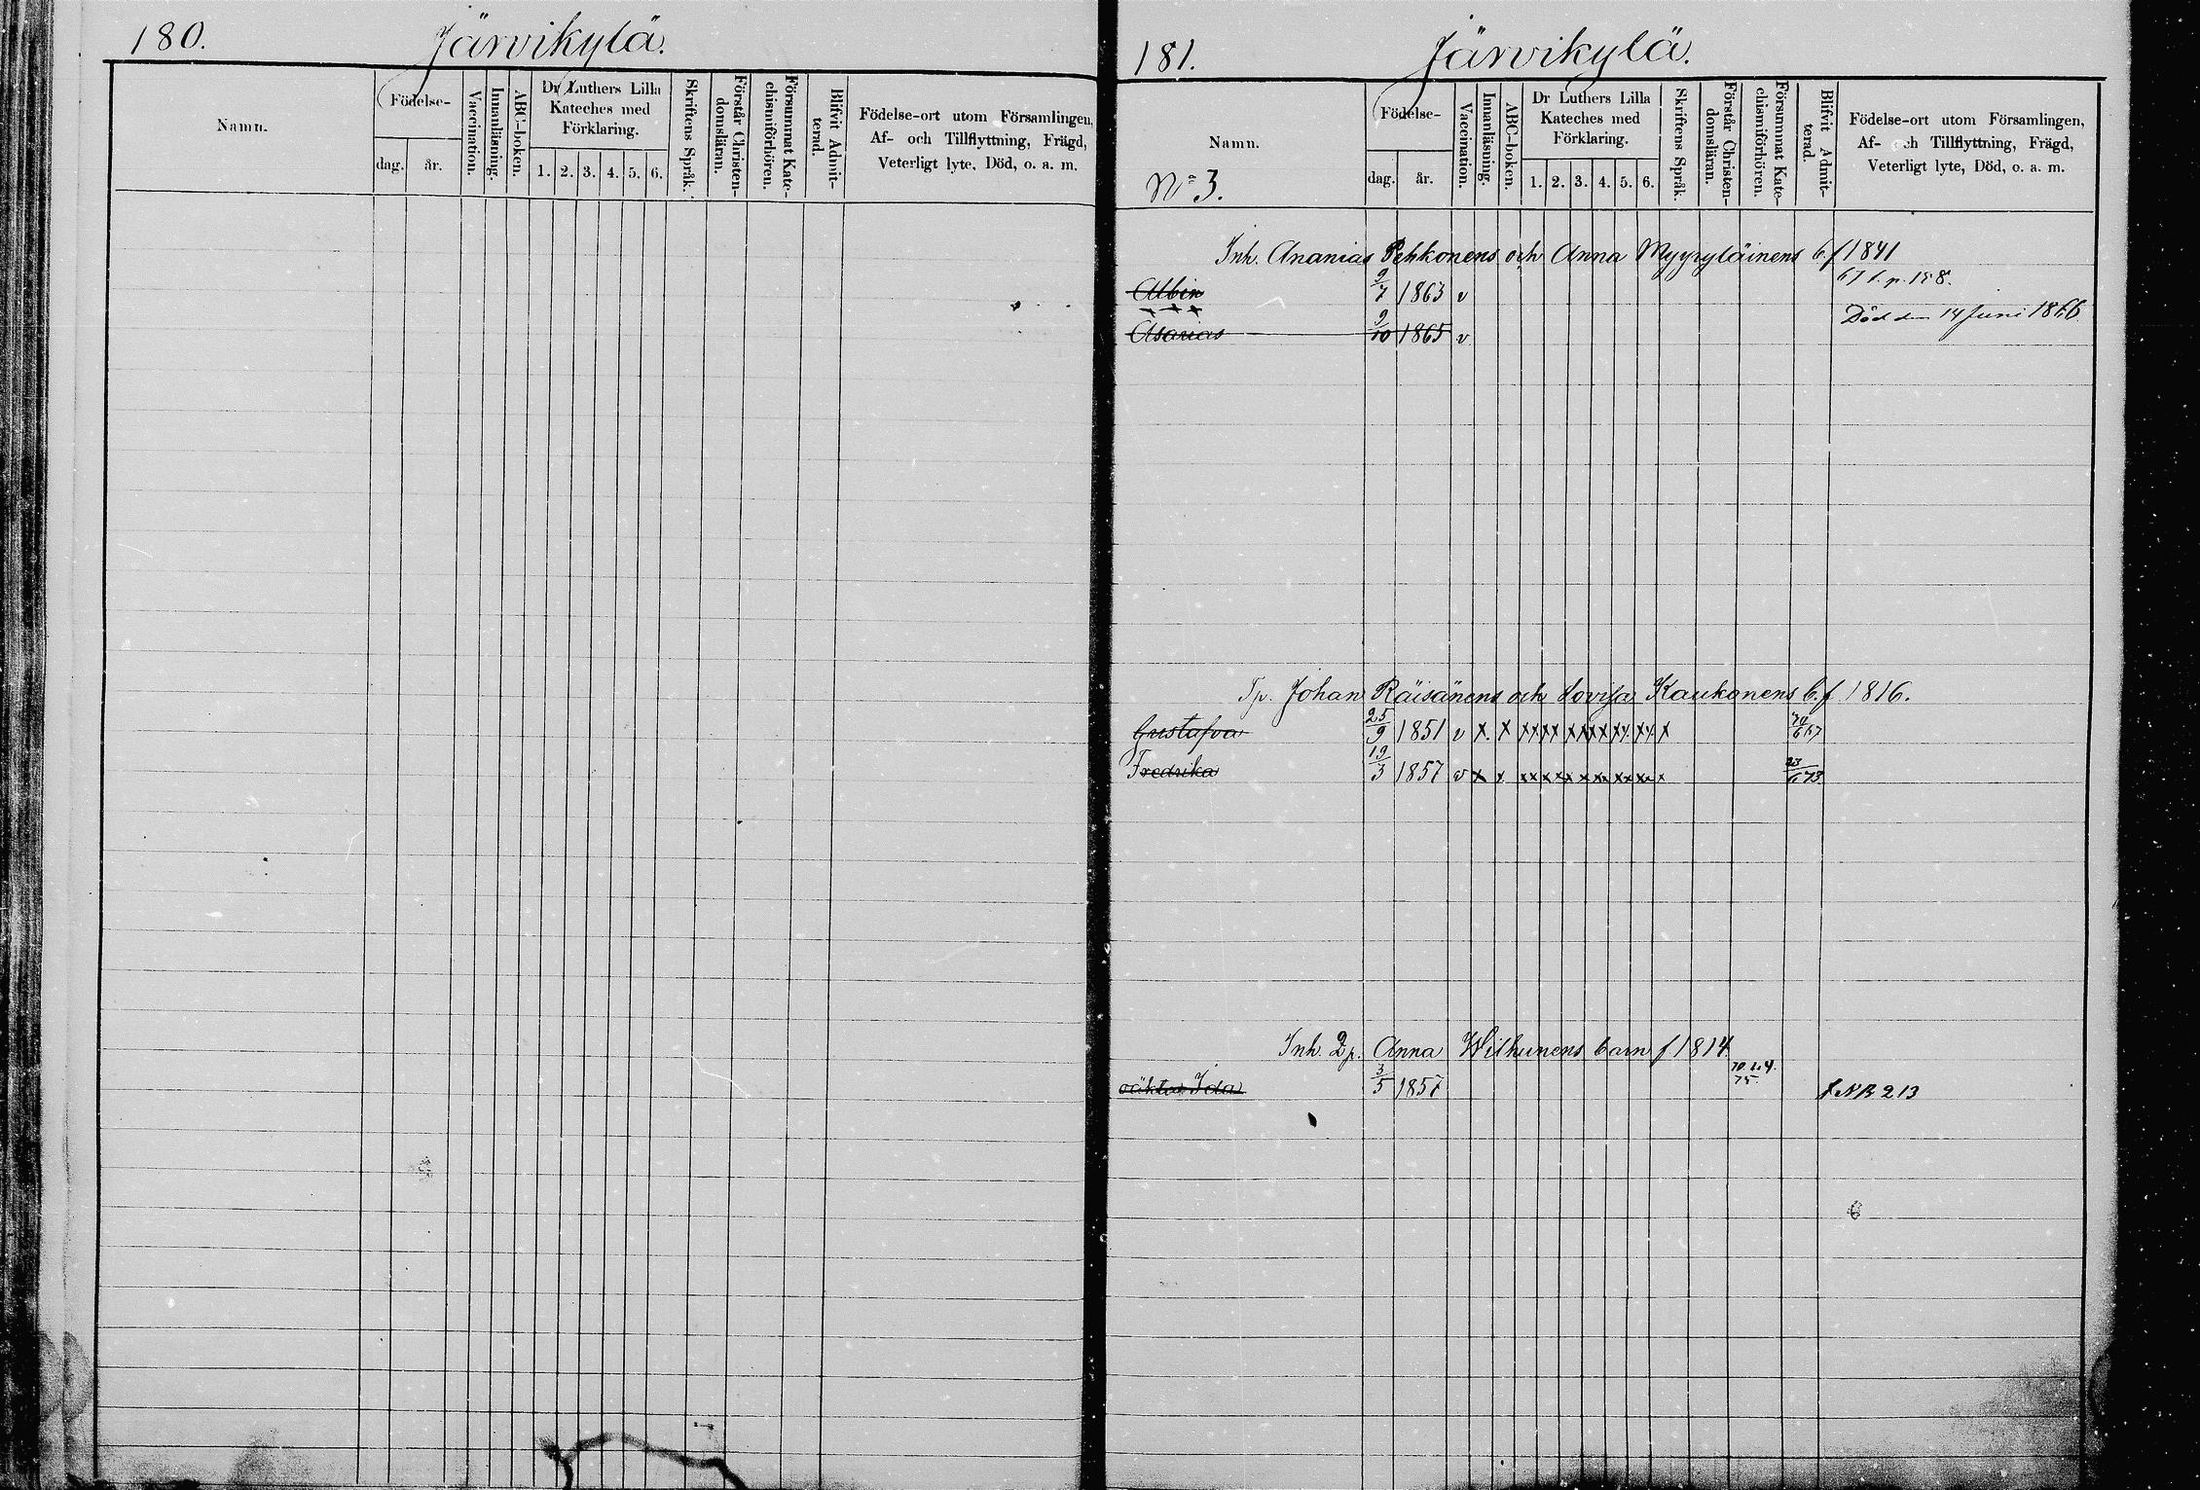 180. Järvikylä.
Namn.
Födelse-
dag. år.
Vaccination.
Innanläsning.
ABC-boken.
Dr Luthers Lilla
Kateches med
Förklaring.
1. 2. 3. 4. 5. 6.
Skriftens Språk.
Förstår Christen-
domsläran.
Försummat Kate-
chismiförhören.
Blifvit Admit-
terad.
Födelse-ort utom Församlingen,
Af- och Tillflyttning, Frägd,
Veterligt lyte, Död, o. a. m.
181. Järvikylä.
Namn.
No 3.
Födelse-
dag. år.
Vaccination.
Innanläsning.
ABC-boken.
Dr Luthers Lilla
Kateches med
Förklaring.
1. 2. 3. 4. 5. 6.
Skriftens Språk.
Förstår Christen-
domsläran.
Försummat Kate-
chismiförhören.
Blifvit Admit-
terad.
Födelse-ort utom Församlingen,
Af- och Tillflyttning, Frägd,
Veterligt lyte, Död, o. a. m.
Inh. Ananias Pehkonens och Anna Myyryläinens b. f 1841
Albin 9/7 1863 v 67 f. p. 158.
Asarias 9/10 1865 v Död den 14 Juni 1866
Tp. Johan Räisänens och Lovisa Kaukonens b. f 1816.
Gustafva 25/9 1851 v x x xx xx xx xx xx xx x
Fredrika 13/3 1857 v x x xx xx xx xx xx xx x 23/6 73
Inh. Anna Wilhunens barn f 1814
oäkta Ida 3/5 1857 f NB 213